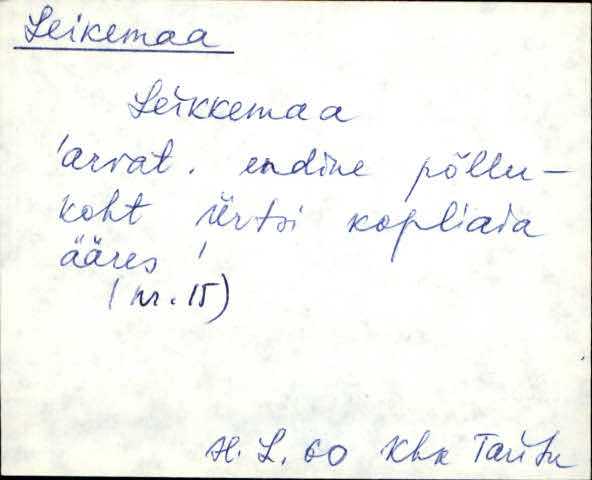 Leikemaa
Leikkemaa
'arvat. endine põllu-
koht Ürtsi kopliaia
ääres'
(nr. 15)
H. L. 60 Khk